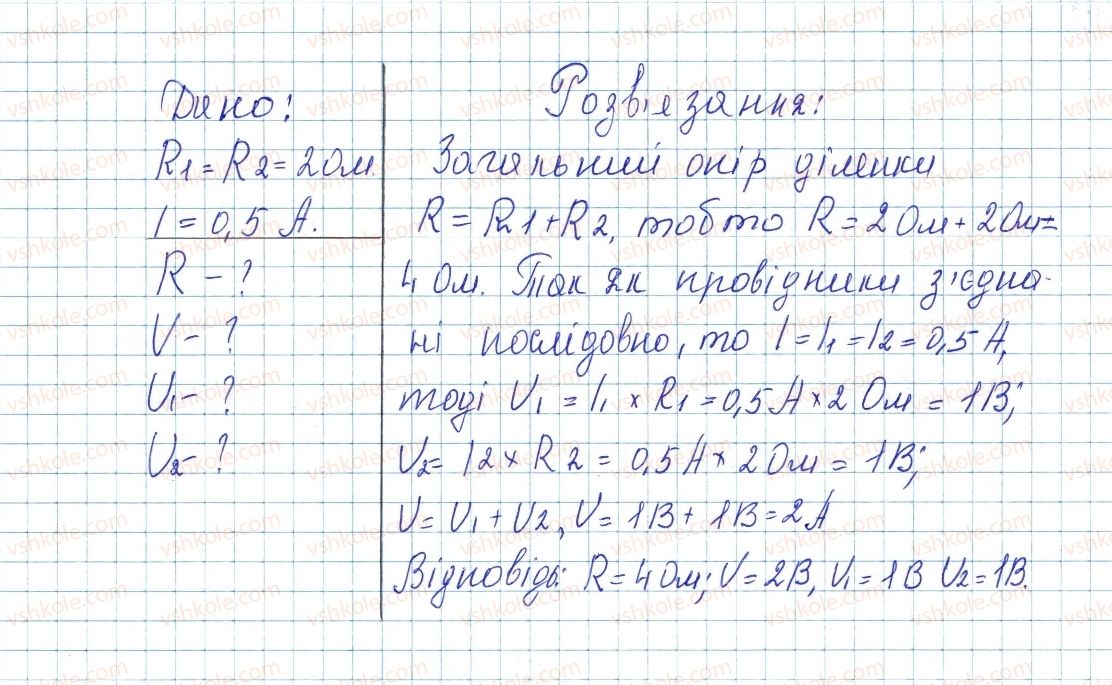 Дано:
R1 = R2 = 2 Ом.
I = 0,5 А.
R - ?
U - ?
U1 - ?
U2 - ?
Розв'язання:
Загальний опір ділянки
R = R1 + R2, тобто R = 2 Ом + 2 Ом =
4 Ом. Так як провідники з'єдна-
ні послідовно, то I = I1 = I2 = 0,5 А,
тоді U1 = I1 × R1 = 0,5 А × 2 Ом = 1В;
U2 = I2 × R2 = 0,5 А × 2 Ом = 1В;
U = U1 + U2, U = 1В + 1В = 2А
Відповідь: R = 4 Ом; U = 2В, U1 = 1В U2 = 1В.
vshkole.com